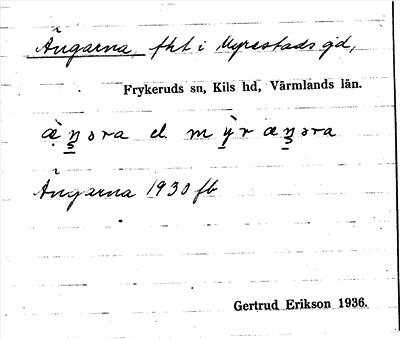 Ängarna, fht i Myrestads gd,
Frykeruds sn, Kils hd, Värmlands län.
æ̀ŋ̠ɔra el. mỳ̠ræŋ̠ɔra
Ängarna 1930 fb
Gertrud Erikson 1936.